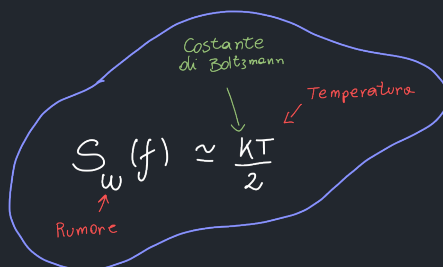 Costante
di Boltzmann
Temperatura
S_w(f) ≃ KT/2
Rumore